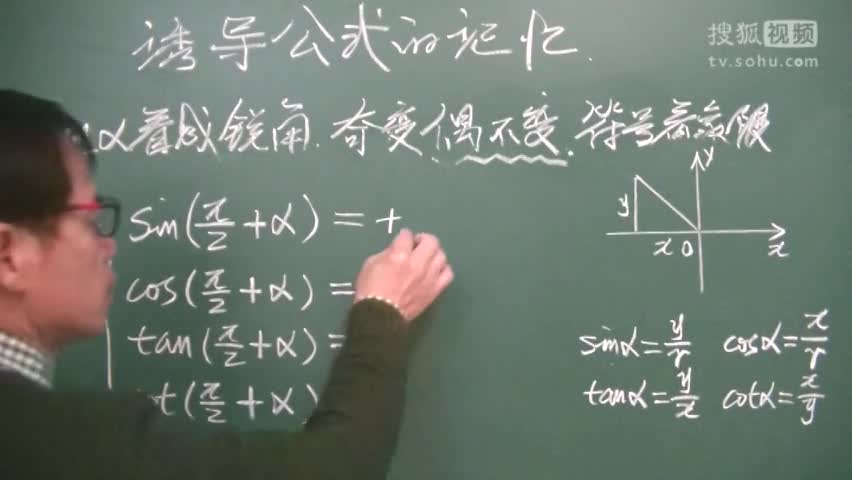 诱导公式的记忆.
搜狐视频
tv.sohu.com
α着成锐角.奇变偶不变.符号看象限
sin(π/2+α)=+
cos(π/2+α)=
tan(π/2+α)=
ot(π/2+α)
y
y
x 0 x
sinα=y/r cosα=x/r
tanα=y/x cotα=x/y